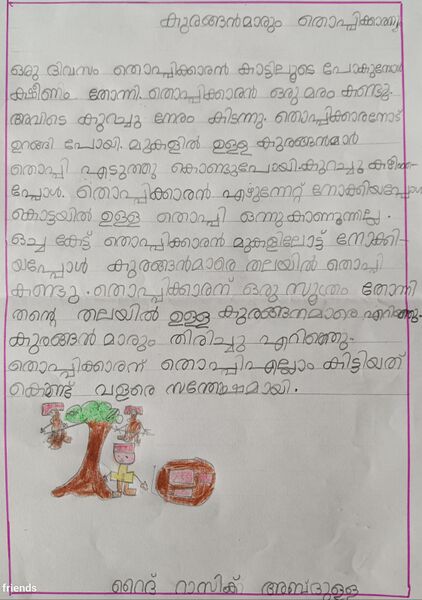 കുരങ്ങൻമാരും തൊപ്പിക്കാരനും
ഒരു ദിവസം തൊപ്പിക്കാരൻ കാട്ടിലൂടെ പോകുമ്പോൾ
ക്ഷീണിം തോന്നി. തൊപ്പിക്കാരൻ ഒരു മരം കണ്ടു.
അവിടെ കുറച്ചു നേരം കിടന്നു. തൊപ്പിക്കാരനോട്
ഉറങ്ങി പോയി. മുകളിൽ ഉള്ള കുരങ്ങൻമാർ
തൊപ്പി എടുത്തു കൊണ്ടുപോയി. കുറച്ചു കഴിഞ്ഞ-
പ്പോൾ. തൊപ്പിക്കാരൻ എഴുന്നേറ്റ് നോക്കിയപ്പോൾ
കൊട്ടയിൽ ഉള്ള തൊപ്പി ഒന്നു കാണുന്നില്ല.
ഒച്ച കേട്ട് തൊപ്പിക്കാരൻ മുകളിലോട്ട് നോക്കി-
യപ്പോൾ കുരങ്ങൻമാരെ തലയിൽ തൊപ്പി
കണ്ടു. തൊപ്പിക്കാരന് ഒരു സൂത്രം തോന്നി
തന്റെ തലയിൽ ഉള്ള കുരങ്ങന്മാരെ എറിഞ്ഞു.
കുരങ്ങൻ മാരും തിരിച്ചു എറിഞ്ഞു.
തൊപ്പിക്കാരന് തൊപ്പി എല്ലാം കിട്ടിയത്
കൊണ്ട് വളരെ സന്തോഷമായി.
friends
റൈദ് റാസിക് അബ്ദുള്ള